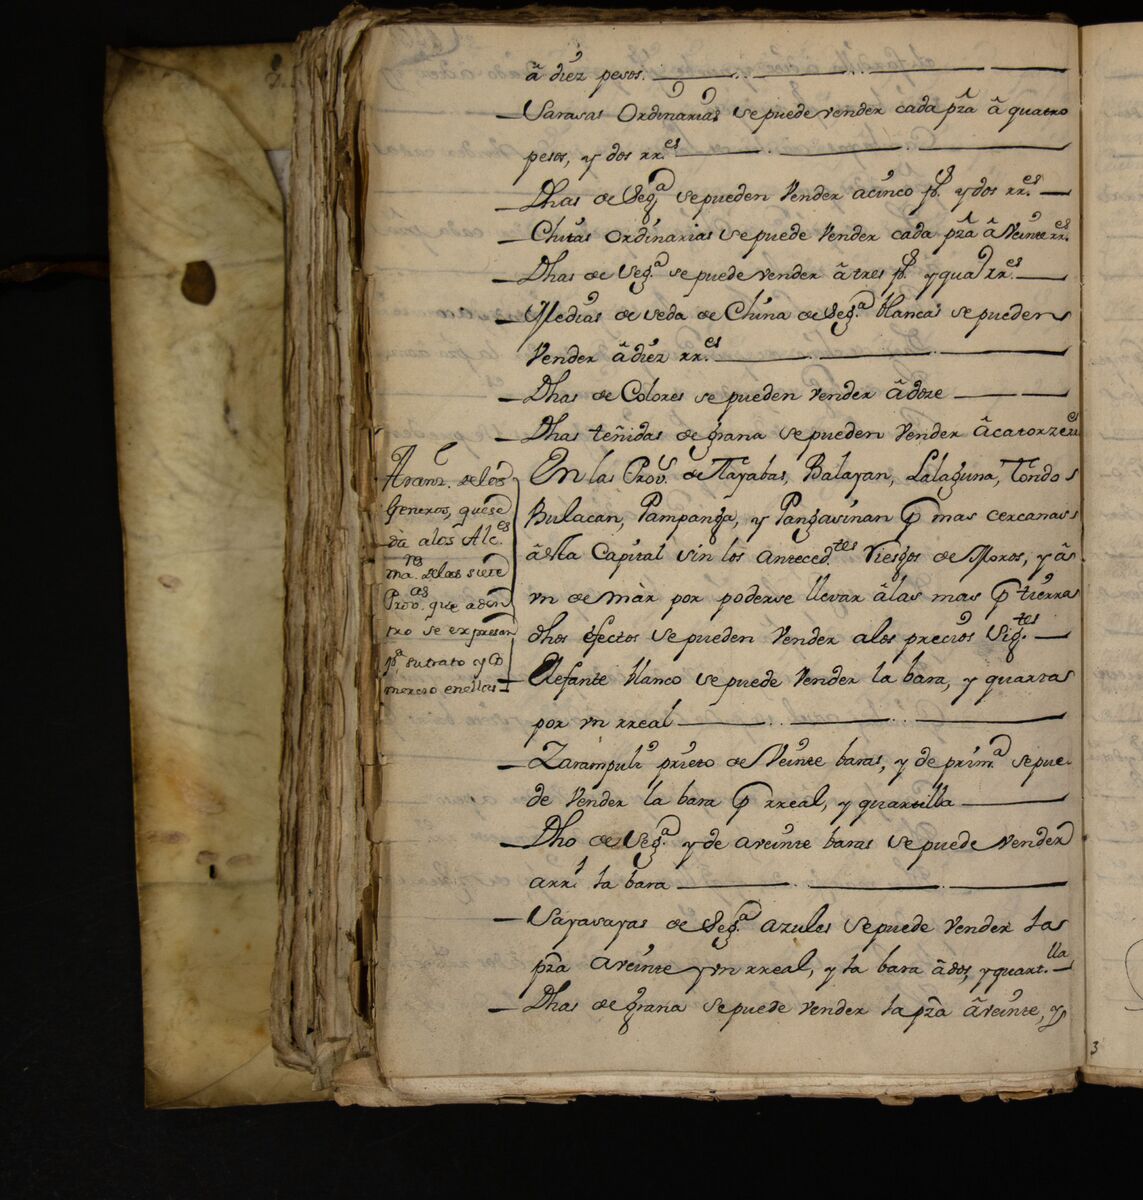 â diez pesos.
Sarasas Ordinarias se puede vender cada pza â quatro
pesos, y dos rr.es
Dhas de Seg.a se pueden Vender a cinco p.s y dos rr.es
Chitas ordinarias se puede Vender cada pza â Veinte rr.es
Dhas de Seg.a se puede vender â tres p.s y quatro rr.es
Medias de seda de China de Seg.a blancas se pueden
Vender â diez rr.es
Dhas de Colores se pueden vender â doze
Dhas teñidas de grana se pueden Vender â catorze rr.es
Aranz.l de los
Generos, que se
dà a los Alc.es
ma.res de las siete
Prov.as que aden
tro se expresan
p.a su trato y co
mercio en ellas
En las Prov.s de Tayabas, Balayan, Lalaguna, Tondo
Bulacan, Pampanga, y Pangasinan p mas cercanas
â esta Capital sin los anteced.tes Riesgos de Moros, y âs
vn de màr por poderse llevar âlas mas p tierra
dhos efectos se pueden Vender alos precios Sig.tes
Elefante blanco se puede Vender la bara, y quartas
por vn rreal
Zarampuli prieto de Veinte baras, y de prim.a se pue
de Vender la bara p rreal, y quartilla
Dho de Seg.a y de a veinte baras se puede Vender
a rr.l la bara
Sayasayas de Seg.a azules se puede Vender las
pza a veinte y vn rreal, y la bara â dos, y quart.lla
Dhas de grana se puede vender la pza â veinte, y
3